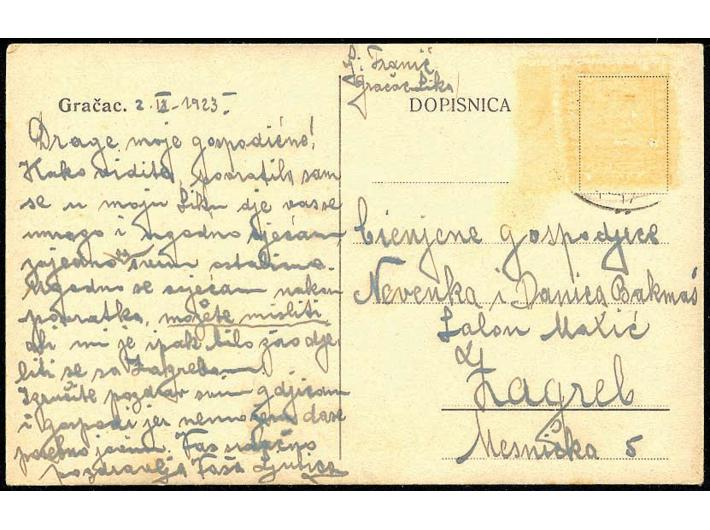 Gračac. 2. IX - 1923.
Drage moje gospodične!
Kako vidite, povratila sam
se u moju Liku dje vas se
mnogo i ugodno sjećam,
zajedno sa svim ostalima.
Ugodno se sjećam nakon
povratka, možete misliti
ali mi je ipak bilo žao dje
liti se sa Zagrebom.
Izručite pozdrav svim gdjicam
i gospodi jer nemožem da se
potebno javim. Vas srdačno
pozdravlja Vaša Ljubica
Lj. Franić
Gračac Lika
DOPISNICA
Cienjene gospodjice
Nevenka i Danica Bakmaš
Salon Matić
Zagreb
Mesnička 5